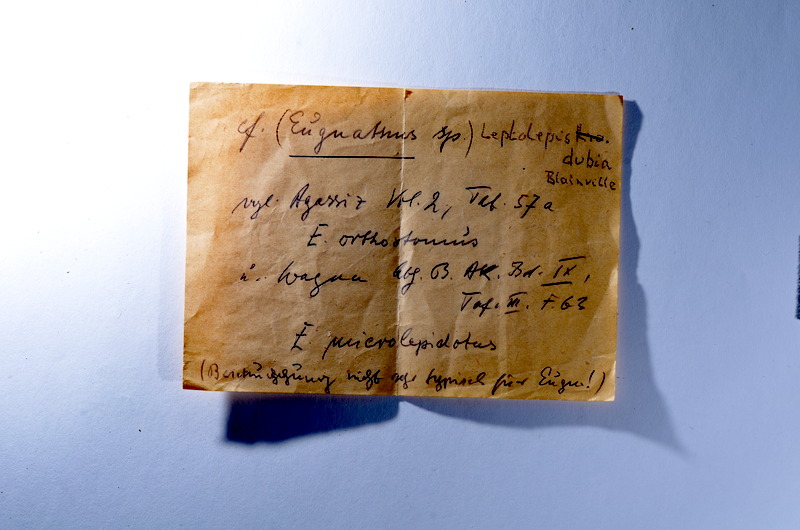 cf. (Eŭgnathus sp.) Leptolepis
dubia
Blainville
vgl. Agassiz Vol. 2, Taf. 57a
E. orthostomŭs
ŭ. Wagner Abg. B. AK. Bd. IX,
Taf. III. F. 63
E. microlepidotus
(Bezahnŭng nicht sehr typisch für Eŭgn.!)